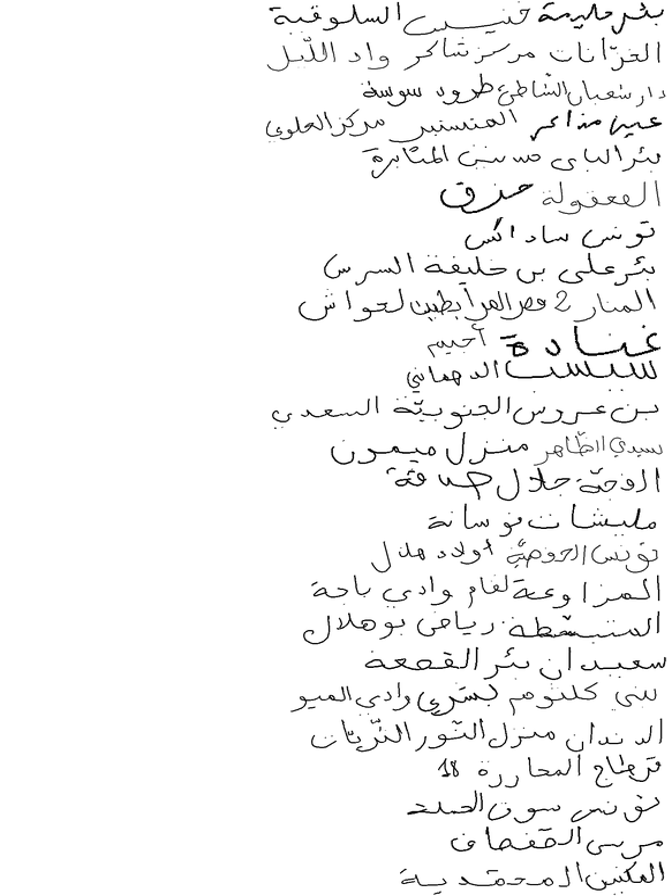 بئر حليمة خنيس السلوقية
الخزّانات مركز شاكر واد اللّيل
دار شعبان الشاطئ طرود سوسة
عين مذاكر المنستير مركز العلوي
بئر الباي المثابرة
المعقولة حزق
تونس ساداكس
بئر علي بن خليفة السرس
المنار 2 قصر المرابطين لحواش
غنادة أجيم
سبست الدهماني
بن عروس الجنوبيّة السعدي
سيدي الظاهر منزل ميمون
جلال
مليشات نوسانة
تونس الحوضيّة أولاد هلال
المزاوعة لغام وادي باجة
المتبسّطة رياض بوهلال
سعيدان بئر القصعة
لبني كلثوم بشري وادي الميو
الدندان منزل النّور التّريّات
قرطاج المحاررة 18
تونس سوق
مرسى القصاف
المكنين المحمّديّة